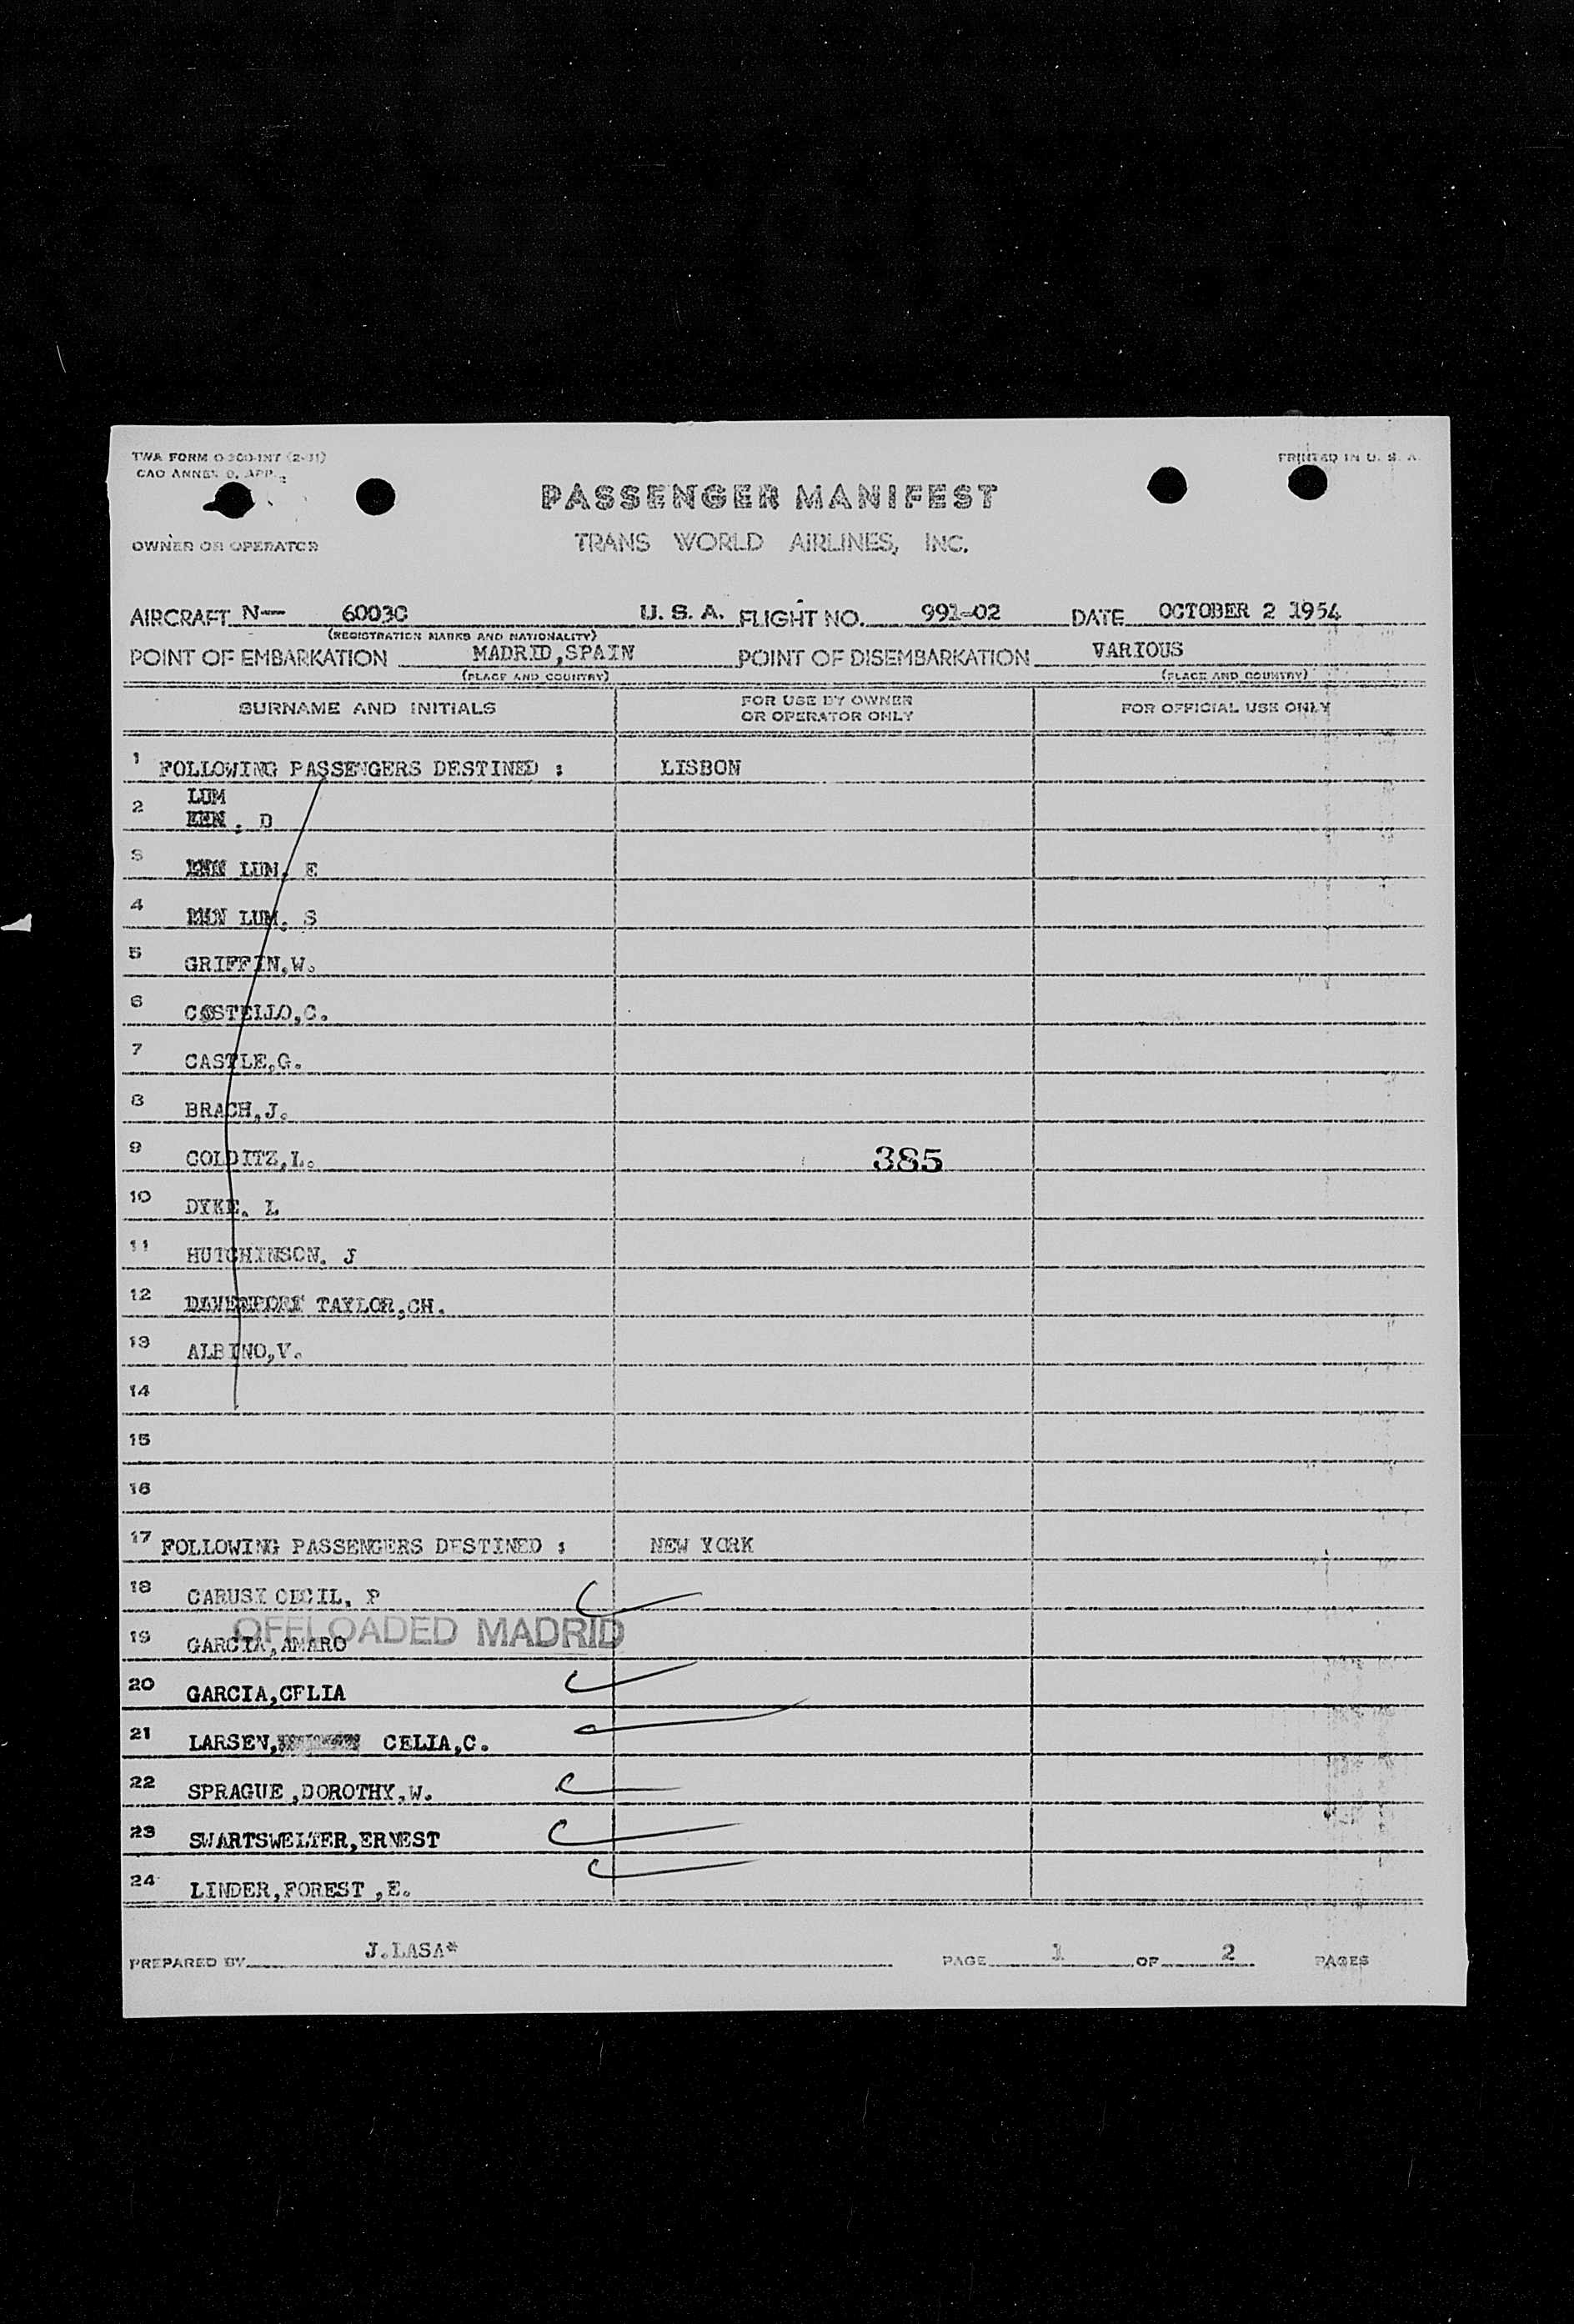 TWA FORM O-200-INT (2-51)
PRINTED IN U. S. A.
CAO ANNEX 9, APP.
PASSENGER MANIFEST
OWNER OR OPERATOR TRANS WORLD AIRLINES, INC.
AIRCRAFT N— 6003C U. S. A. FLIGHT NO. 991-02 DATE OCTOBER 2 1954
(REGISTRATION MARKS AND NATIONALITY)
POINT OF EMBARKATION MADRID,SPAIN POINT OF DISEMBARKATION VARIOUS
(PLACE AND COUNTRY) (PLACE AND COUNTRY)
SURNAME AND INITIALS FOR USE BY OWNER OR OPERATOR ONLY FOR OFFICIAL USE ONLY
1 FOLLOWING PASSENGERS DESTINED : LISBON
2 LUM
. D
3 LUM. E
4 LUM. S
5 GRIFFIN,W.
6 COSTELLO,C.
7 CASTLE,G.
8 BRACH,J.
9 GOLDITZ,L. 385
10 DYKE. L
11 HUTCHINSON. J
12 DAVENPORT TAYLOR,CH.
13 ALBINO,V.
14
15
16
17 FOLLOWING PASSENGERS DESTINED : NEW YORK
18 CARUSI CECIL, P
OFFLOADED MADRID
19 GARCIA,AMARO
20 GARCIA,CELIA
21 LARSEN, CELIA,C.
22 SPRAGUE ,DOROTHY,W.
23 SWARTSWELTER,ERNEST
24 LINDER,FOREST ,E.
PREPARED BY J.LASA* PAGE 1 OF 2 PAGES